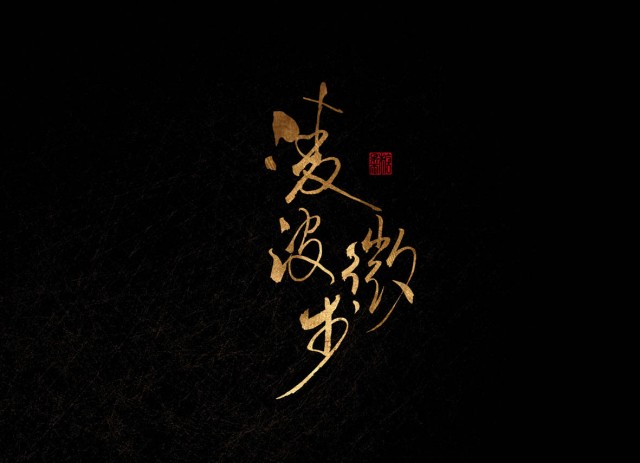 凌波微步